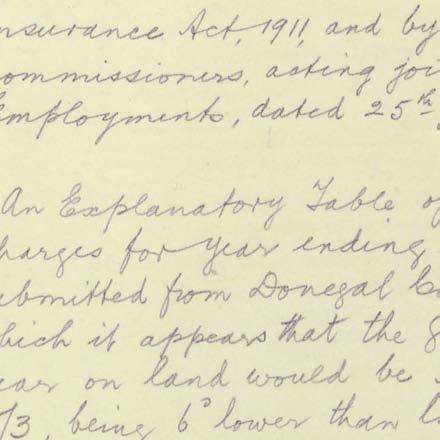 nsurance Act, 1911, and by
ommissioners, acting joi
Employments, dated 25th,
An Explanatory Table of
harges for year ending
ubmitted from Donegal Co
hich it appears that the
ear on land would be
/3, being 6d lower than la